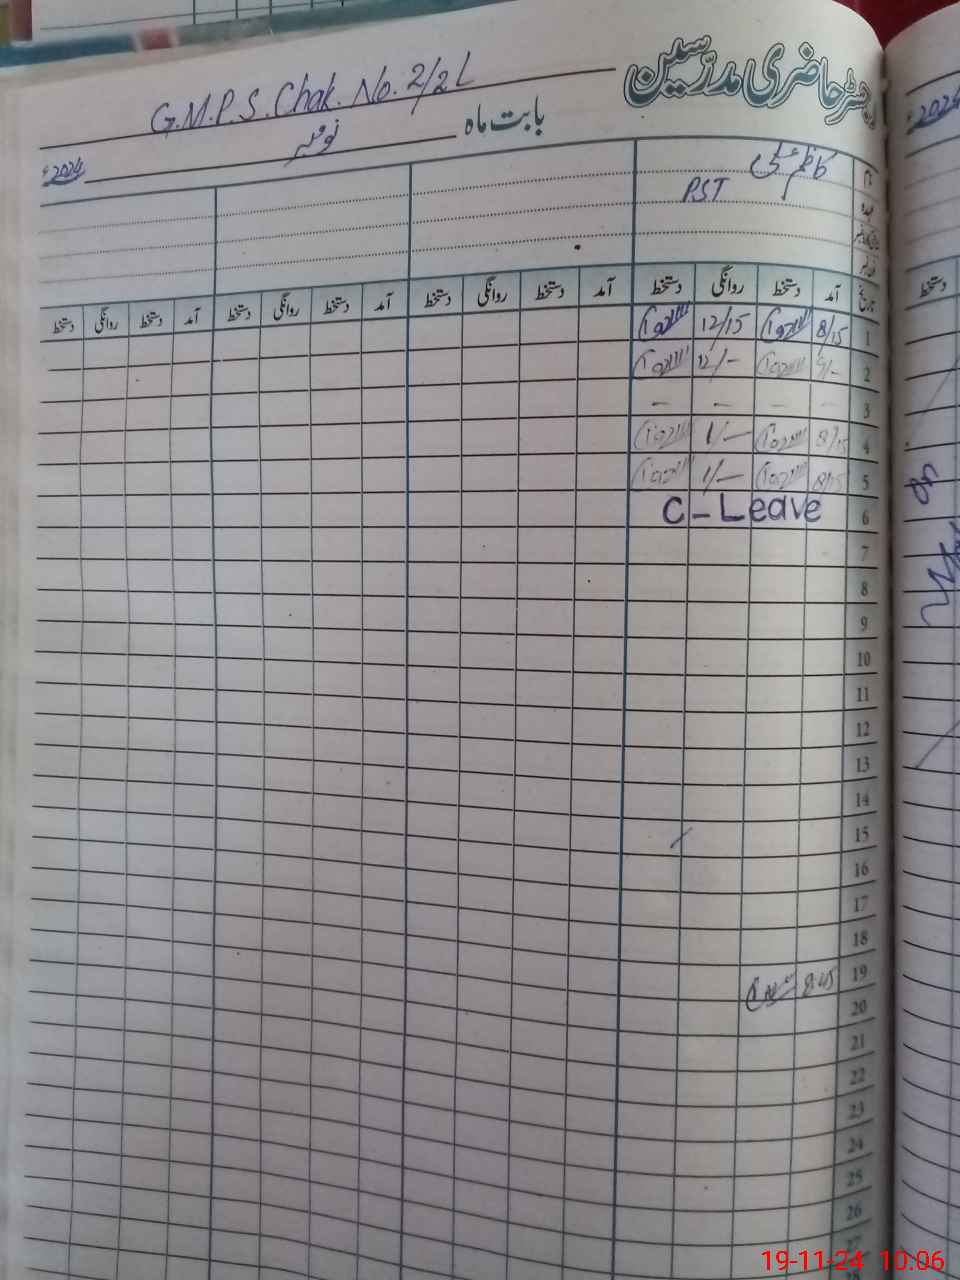 رجسٹر حاضری مدرسین G.M.P.S. Chak. No. 2/2L
بابت ماہ نومبر 2024ء
نام کاظم علی
عہدہ PST
تاریخ آمد دستخط روانگی دستخط آمد دستخط روانگی دستخط آمد دستخط روانگی دستخط آمد دستخط روانگی دستخط
1 8/15 12/15
2 9/- 12/-
3 - - - -
4 8/15 1/-
5 8/15 1/-
6 C-Leave
7
8
9
10
11
12
13
14
15
16
17
18
19 8:45
20
21
22
23
24
25
26
27
2024
دستخط
19-11-24 10:06